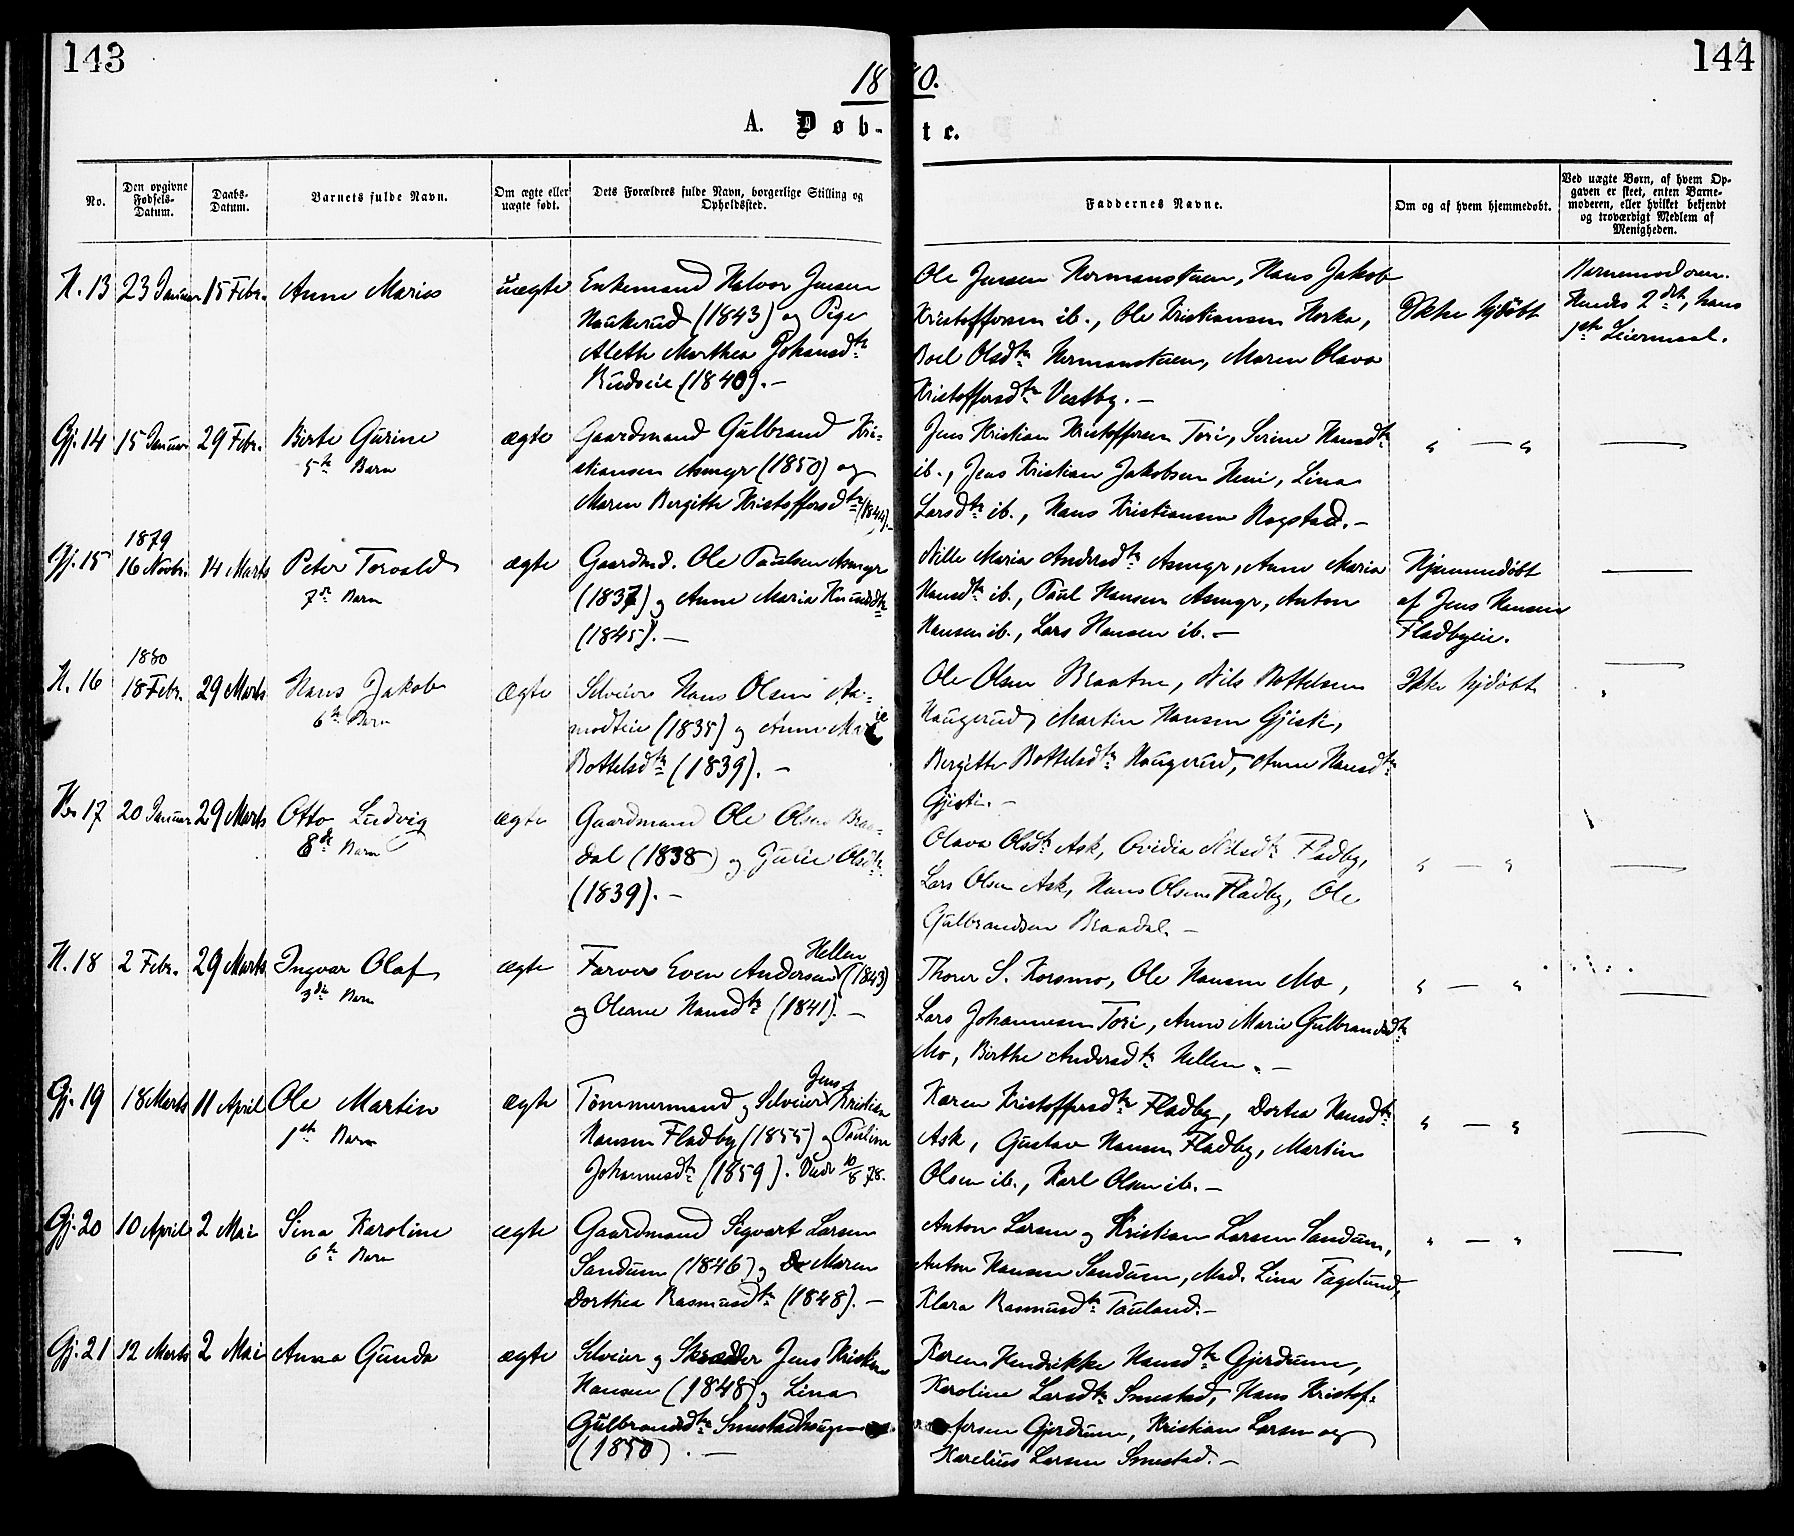 143
144
1880.
A. Døbte.
No.
Den opgivne Fødsels-Datum.
Daabs-Datum.
Barnets fulde Navn.
Om ægte eller uægte født.
Dets Forældres fulde Navn, borgerlige Stilling og Opholdssted.
Faddernes Navne.
Om og af hvem hjemmedøbt.
Ved uægte Børn, af hvem Op-
gaven er skeet, enten Barne-
moderen, eller hvilket bekjendt
og troværdigt Medlem af
Menigheden.
H. 13 23 Januar 15 Febr. Anne Marie uægte
Enkemand Halvor Jensen
Haukerud (1843) og Pige
Alethe Marthea Johansdtr
(1840). —
Ole Jensen Hermanstuen, Hans Jakob
Kristoffersen ib., Ole Kristiansen Horka,
Boel Olsdtr Hermanstuen, Maren Olava
Kristoffersdtr Vestby. —
Ikke hjdøbt
Barnemoderen.
Hendes 2det, hans
1ste Leiermaal.
Gj. 14 15 Januar 29 Febr. Berte Gurine ægte
5te Barn
Gaardmand Gulbrand Kri-
stiansen Asmyr (1850) og
Maren Bergitte Kristoffersdtr (1844). —
Jens Kristian Kristoffersen Tori, Serine Hansdtr
ib., Jens Kristian Jakobsen Heni, Lina
Larsdtr ib., Hans Kristiansen Rogstad. —
" — "
—
1879
Gj. 15 16 Novbr. 14 Marts Peter Torvald ægte
7de Barn
Gaardmd. Ole Paulsen Asmyr
(1837) og Anne Maria Knudsdtr
(1845). —
Nille Maria Andersdtr Asmyr, Anne Maria
Hansdtr ib., Paul Hansen Asmyr, Anton
Hansen ib., Lars Hansen ib. —
Hjemmedøbt
af Jens Hansen
Fladbyeie.
—
1880
H. 16 18 Febr. 29 Marts Hans Jakob ægte
6te Barn
Selveier Hans Olsen Aa-
modteie (1835) og Anne Marie
Bottelsdtr (1839). —
Ole Olsen Braaten, Nils Bottelsen
Haugerud, Martin Hansen Gjesti,
Bergitte Bottelsdtr Haugerud, Anne Hansdtr
Gjesti. —
Ikke hjdøbt
—
17 20 Januar 29 Marts Otto Ludvig ægte
8de Barn
Gaardmand Ole Olsen Braa-
dal (1838) og Julie Olsdtr
(1839). —
Olava Olsdtr Ask, Ovidia Nilsdtr Fladby,
Lars Olsen Ask, Hans Olsen Fladby, Ole
Gulbrandsen Braadal. —
" — "
—
H. 18 2 Febr. 29 Marts Ingvar Olaf ægte
3die Barn
Hellen
Farver Even Andersen (1843)
og Oleane Hansdtr (1841). —
Thorer S. Korsmo, Ole Hansen Mo,
Lars Johannesen Tori, Anne Marie Gulbrandsdtr
Mo, Berthe Andersdtr Hellen. —
" — "
—
Gj. 19 18 Marts 11 April Ole Martin ægte
1ste Barn
Jens
Tømmermand og Selveier Kristian
Hansen Fladby (1855) og Pauline
Johannesdtr (1859). Viede 10/5 78.
Karen Kristoffersdtr Fladby, Dortea Hansdtr
Ask, Gustav Hansen Fladby, Martin
Olsen ib., Karl Olsen ib. —
" — "
—
Gj. 20 10 April 2 Mai Sina Karoline ægte
6te Barn
Gaardmand Sigvart Larsen
Sandum (1846) og Maren
Dorthea Rasmusdtr (1848). —
Anton Larsen og Kristian Larsen Sandum,
Anton Hansen Sandum, Mad. Lina Fagelund,
Klara Rasmusdtr Tauland. —
" — "
—
Gj. 21 12 Marts 2 Mai Anna Gunda ægte
Selveier og Skrædder Jens Kristian
Hansen (1848) og Lina
Gulbrandsdtr Smestadhaugen
(1850). —
Karen Hendrikke Hansdtr Gjerdrum,
Karoline Larsdtr Smestad, Hans Kristof-
fersen Gjerdrum, Kristian Larsen og
Karelius Larsen Smestad. —